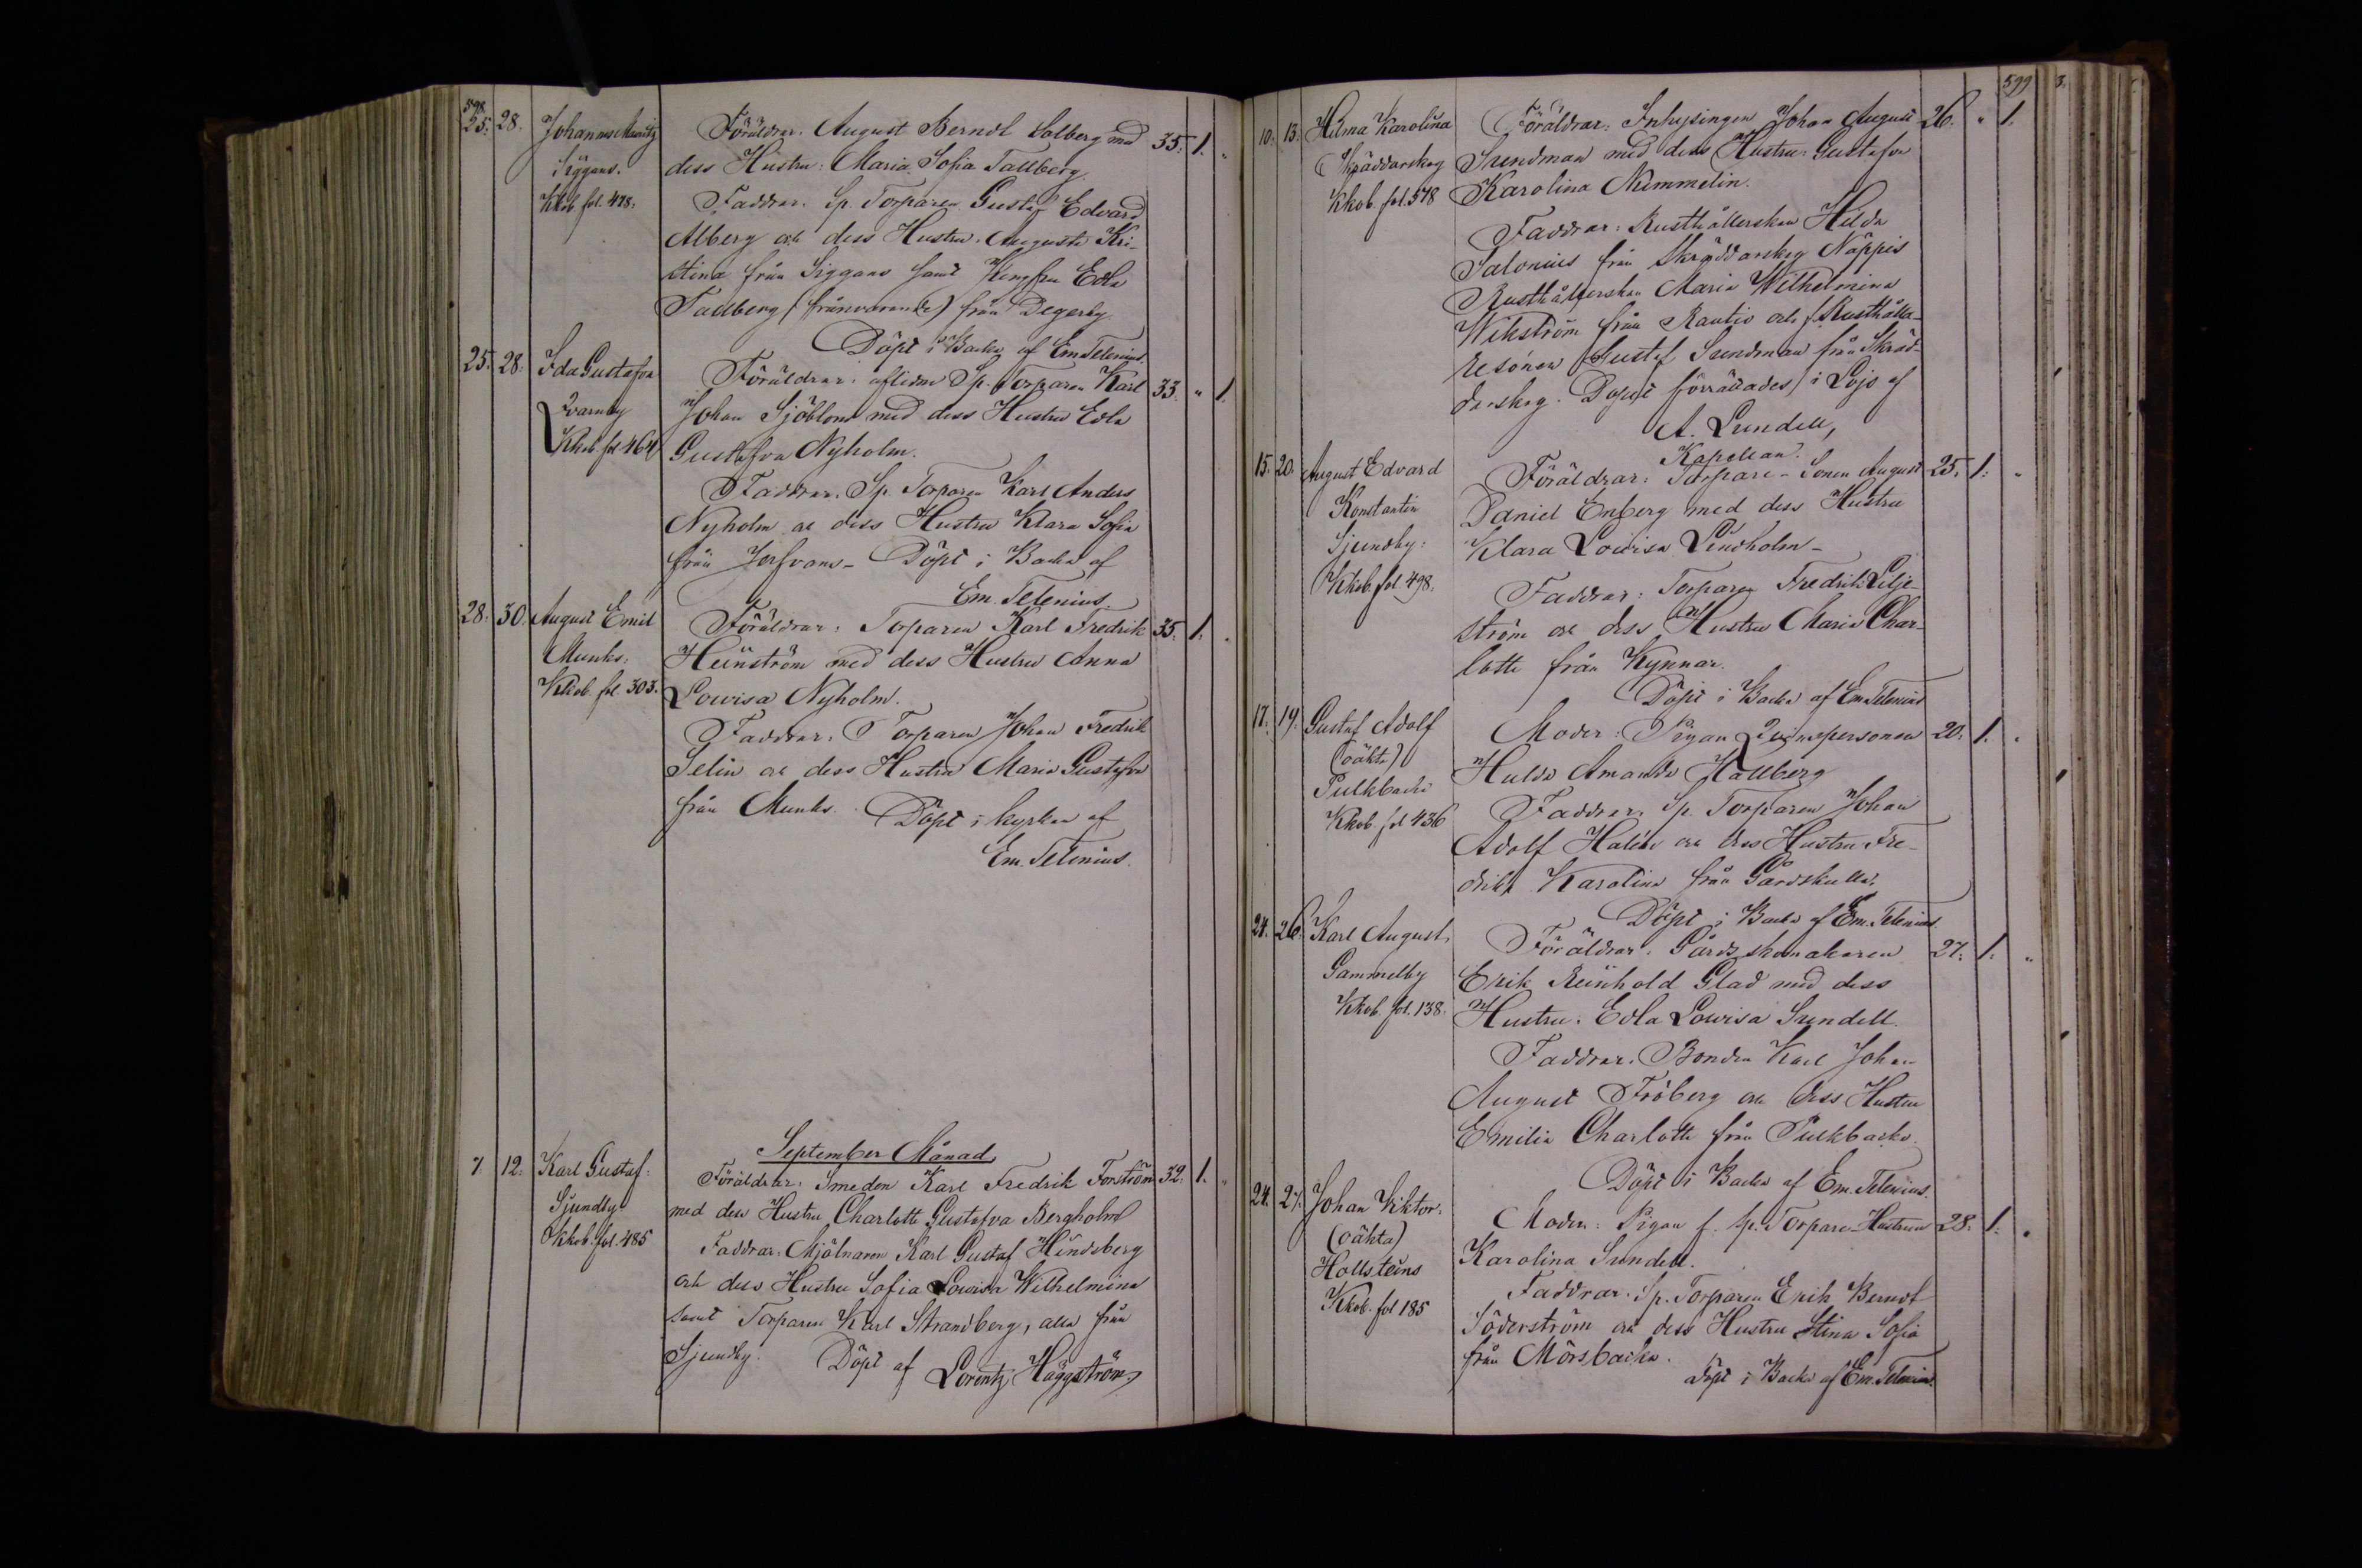 598.
25. 28. Johannes Mauritz Föräldrar: August Berndt Salberg med 35. 1. "
Siggans. dess Hustru: Maria Sofia Tallberg.
Kkob. fol. 478. Faddrar: Sp. Torparen Gustaf Edvard
Alberg och dess Hustru Augusta Kri-
stina från Siggans samt Jungfru Edla
Tallberg (frånvarande) från Degerby.
Döpt i Backa af Em. Telenius.
25. 28. Ida Gustafva Föräldrar: aflidne Sp. Torparen Karl 33. " 1.
Qvarnby Johan Sjöblom med dess Hustru Edla
Kkob. fol 464 Gustafva Nyholm.
Faddrar: Sp. Torparen Karl Anders
Nyholm och dess Hustru Klara Sofia
från Döpt i Backa af
Em. Telenius.
28. 30. August Emil Föräldrar: Torparen Karl Fredrik 35. 1. "
Munks. Heinström med dess Hustru Anna
Kkob. fol. 303. Lovisa Nyholm.
Faddrar: Torparen Johan Fredrik
Selin och dess Hustru Maria Gustafva
från Munks. Döpt i kyrkan af
Em. Telenius.
September Månad
7. 12. Karl Gustaf. Föräldrar: Smeden Karl Fredrik Forström 32. 1. "
Sjundby med dess Hustru Charlotta Gustafva Bergholm
Kkob. fol. 485 Faddrar: Mjölnaren Karl Gustaf Hindsberg
och dess Hustru Sofia Lovisa Wilhelmina
samt Torparen Karl Strandberg, alla från
Sjundby. Döpt af Lorentz Häggström.
599 3.
10. 13. Hilma Karolina Föräldrar: Inhysingen Johan August 26. " 1.
Skräddarskog Sundman med dess Hustru Gustafva
Kkob. fol. 578 Karolina Nummelin.
Faddrar: Rusthållerskan Hilda
Salonius från Skräddarskog Näppis
Rusthållerskan Maria Wilhelmina
Wikström från Rautio och Rusthålla-
resonen Gustaf Sundman från Skräd-
darskog. Dopet förrättades i Lojo af
A. Lundell,
Kapellan.
15. 20. August Edvard Föräldrar: Torpare-Sonen August 25. 1. "
Konstantin Daniel Enberg med dess Hustru
Sjundby. Klara Lovisa Lindholm-
Kkob. fol. 498. Faddrar: Torparen Fredrik Lilje-
ström och dess Hustru Maria Char-
lotta från Kynnar.
Döpt i Backa af Em. Telenius
17. 19. Gustaf Adolf Moder: Pigan Qvinspersonen 20. 1. "
(oäkta) Hulda Amanda Hallberg
Pulkbacka Faddrar: Sp. Torparen Johan
Kkob. fol 436 Adolf Halén och dess Hustru Fre-
drika Karolina från Gårdskulla.
Döpt i Backa af Em. Telenius.
24. 26. Karl August. Föräldrar: Gårdsskomakaren 27. 1. "
Gammelby Erik Reinhold Glad med dess
Kkob. fol. 138. Hustru: Edla Lovisa Sundell.
Faddrar: Bonden Karl Johan
August Fröberg och dess Hustru
Emilia Charlotta från Pulkbacka.
Döpt i Backa af Em. Telenius.
24. 27. Johan Viktor. Moder: Pigan f. sp. Torpare-Hustrun 28. 1. "
(oäkta) Karolina Sundell.
Hollsteins Faddrar: Sp. Torparen Erik Berndt
Kkob. fol 185 Söderström och dess Hustru Stina Sofia
från Mörsbacka.
Döpt i Backa af Em. Telenius.